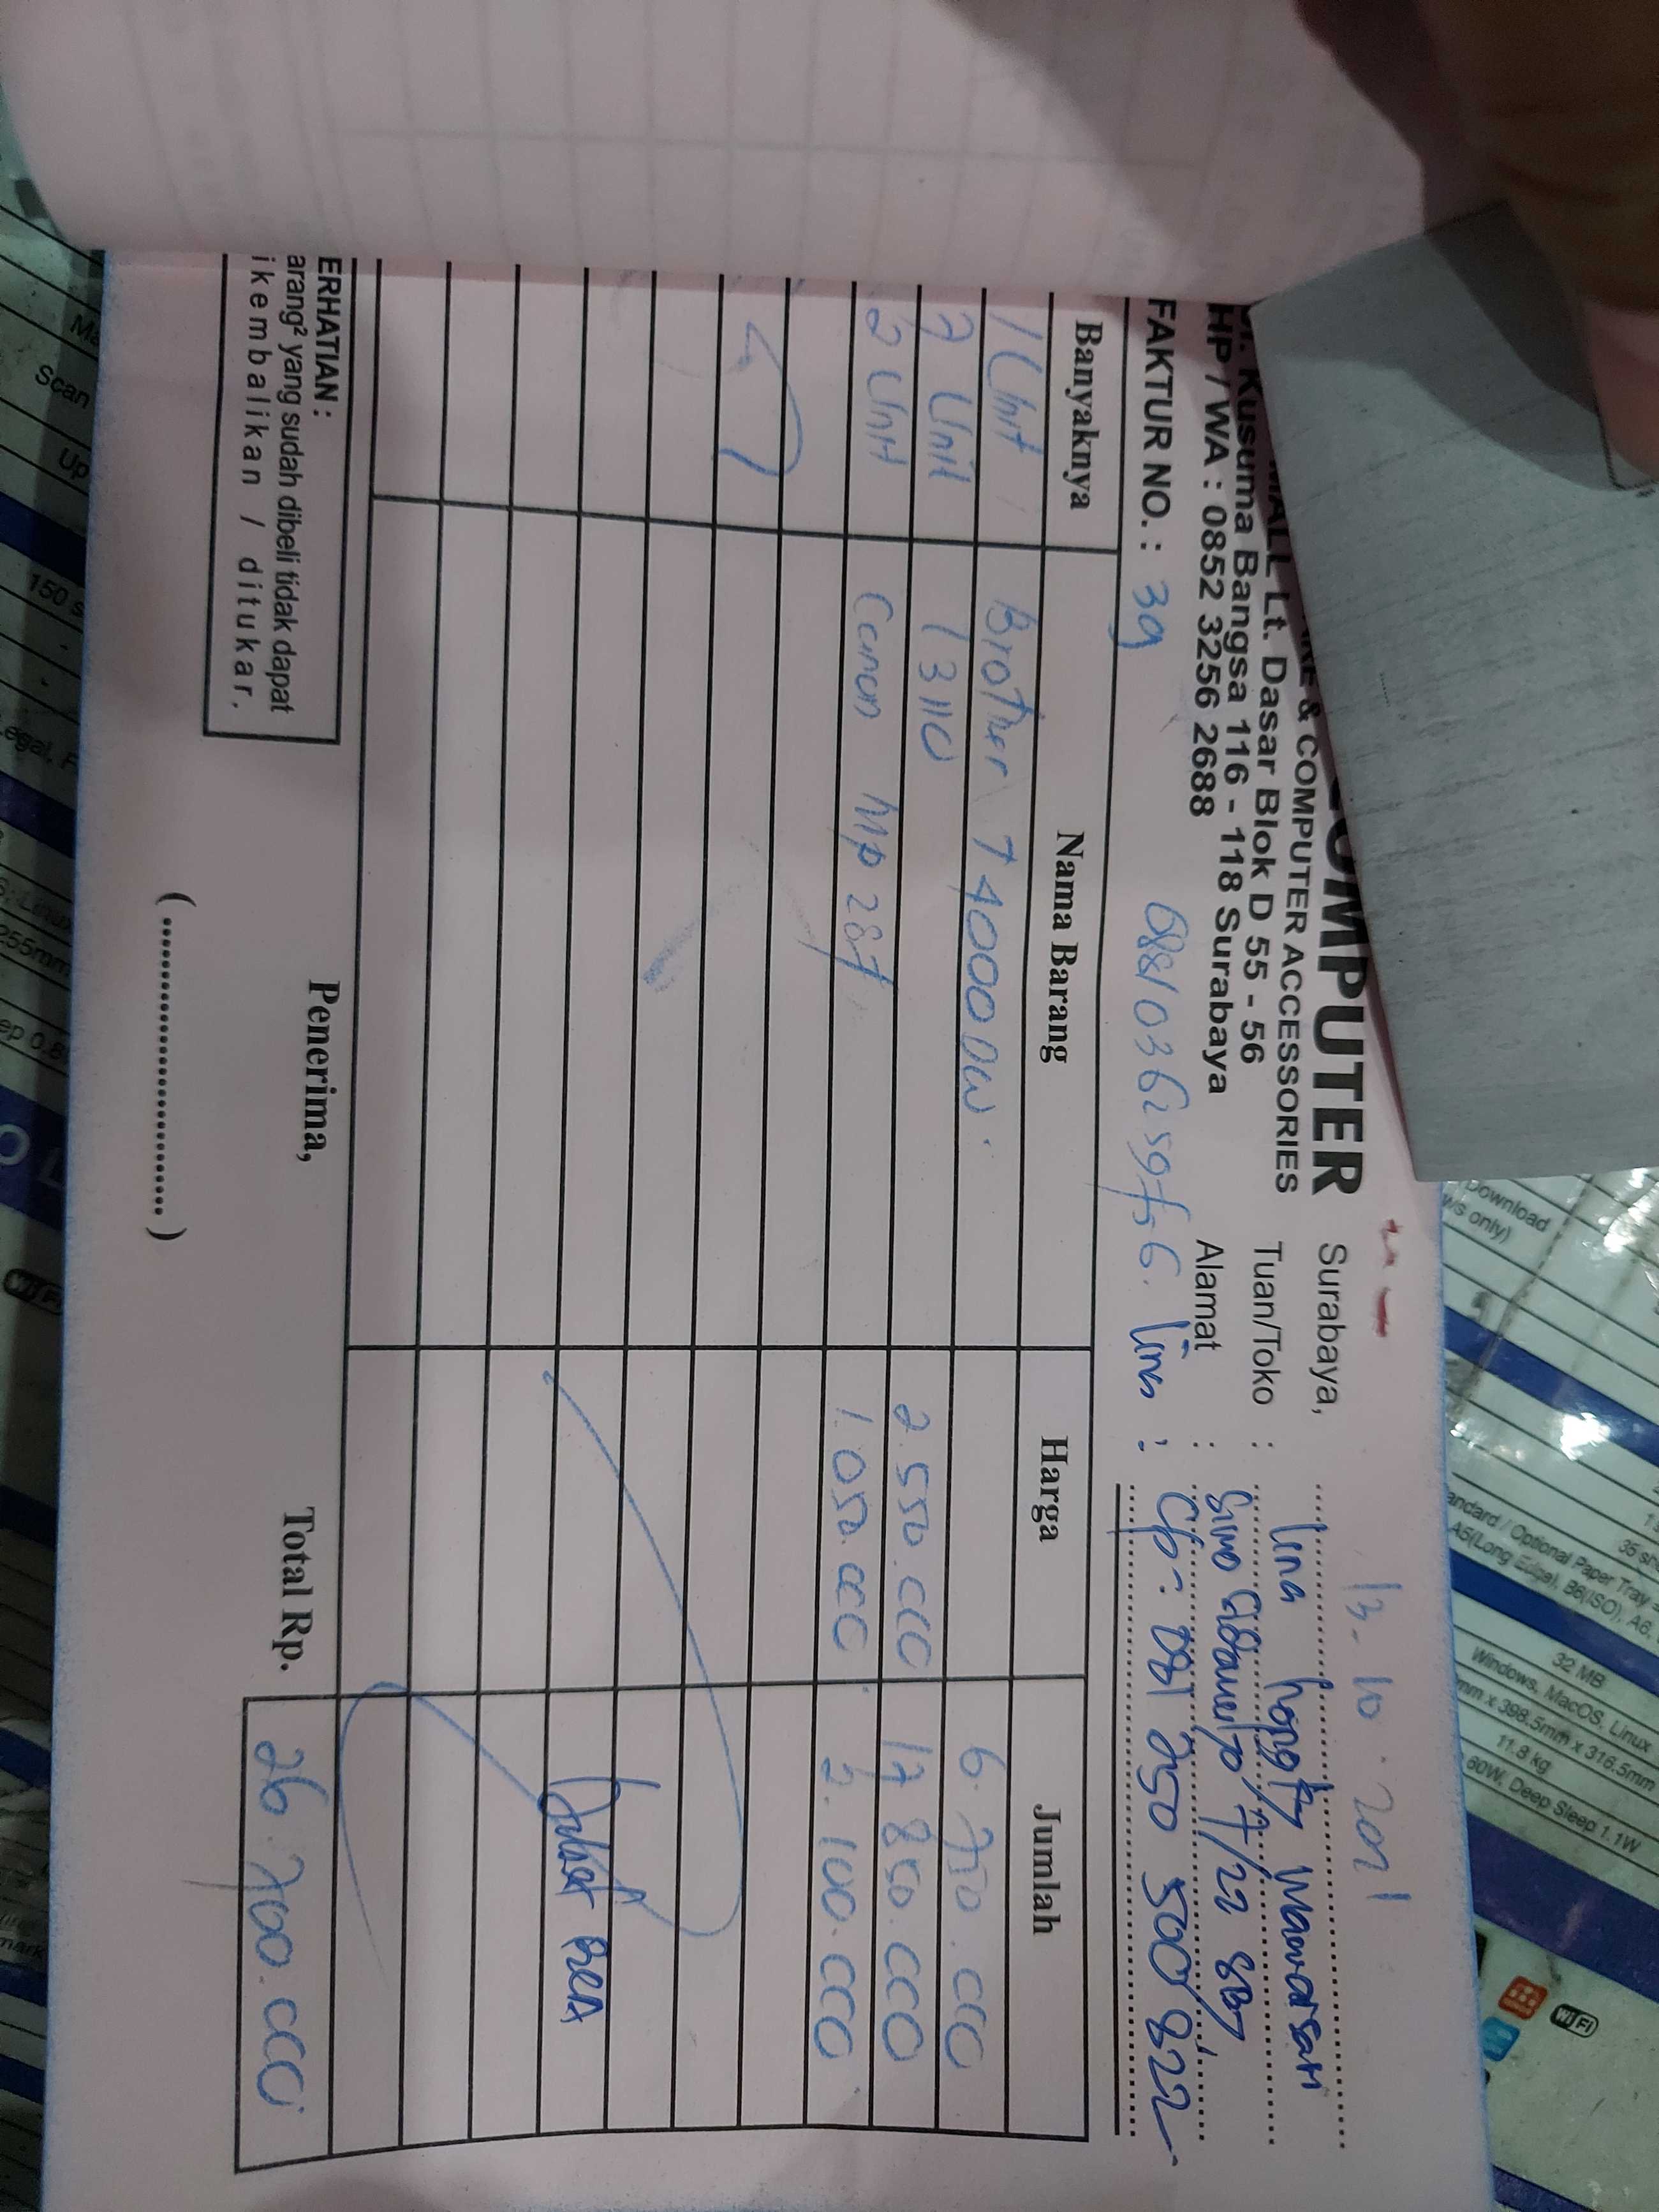 COMPUTER
& COMPUTER ACCESSORIES
MALL Lt. Dasar Blok D 55 - 56
Kusuma Bangsa 116 - 118 Surabaya
HP / WA : 0852 3256 2688
Surabaya, 13-10-2021
Tuan/Toko : lina hongky
Alamat :
FAKTUR NO. : 39
: Cp: 081 2150 500 822
Banyaknya Nama Barang Harga Jumlah
1 Unit Brother T4000DW 6.750.000
7 Unit L3110 2.550.000 17.850.000
2 Unit Canon MP 287 1.050.000 2.100.000
BCA
ERHATIAN :
arang² yang sudah dibeli tidak dapat
ikembalikan / ditukar.
Penerima,
(..............................)
Total Rp. 26.700.000
Scan
Up
150 s
255mm
Download
ws only)
35 sh
andard / Optional Paper Tray =
A5(Long Edge), B6(ISO), A6,
32 MB
Windows, MacOS, Linux
mm x 398.5mm x 316.5mm
11.8 kg
60W, Deep Sleep 1.1W
WiFi